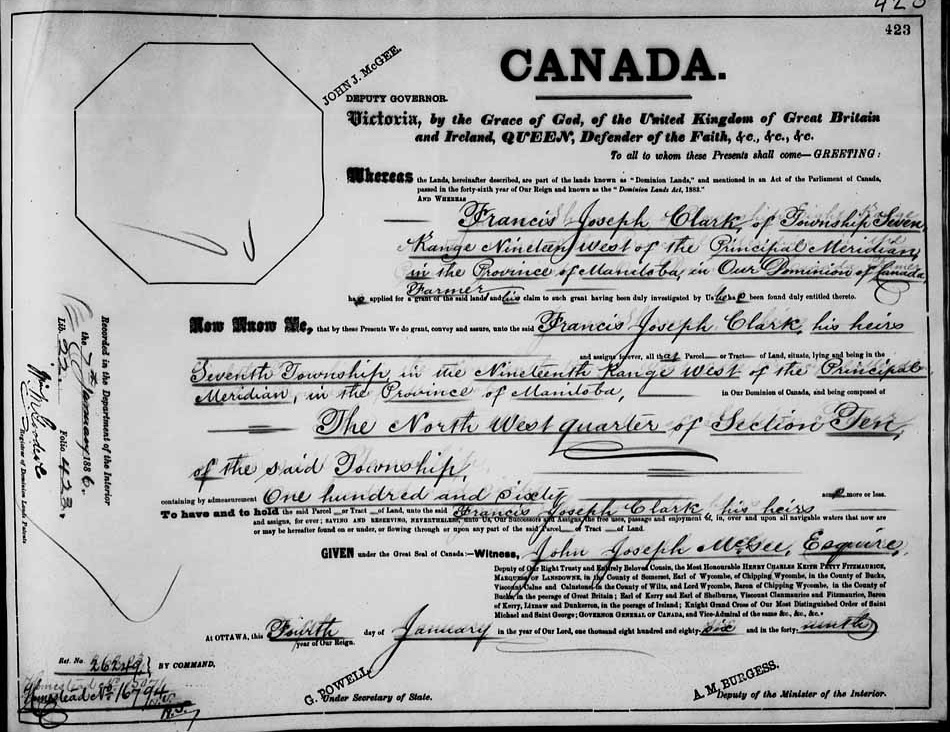 423
423
JOHN J. McGEE.
CANADA.
DEPUTY GOVERNOR.
Victoria, by the Grace of God, of the United Kingdom of Great Britain
and Ireland, QUEEN, Defender of the Faith, &c., &c., &c.
To all to whom these Presents shall come—GREETING:
Whereas the Lands, hereinafter described, are part of the lands known as "Dominion Lands," and mentioned in an Act of the Parliament of Canada,
passed in the forty-sixth year of Our Reign and known as the "Dominion Lands Act, 1883."
AND WHEREAS
Francis Joseph Clark, of Township Seven
Range Nineteen West of the Principal Meridian,
in the Province of Manitoba, in Our Dominion of Canada,
Farmer
has applied for a grant of the said lands and his claim to such grant having been duly investigated by Us he has been found duly entitled thereto.
Now Know Ye, that by these Presents We do grant, convey and assure, unto the said Francis Joseph Clark, his heirs
and assigns forever, all that Parcel or Tract of Land, situate, lying and being in the
Seventh Township, in the Nineteenth Range West of the Principal
Meridian, in the Province of Manitoba, in Our Dominion of Canada, and being composed of
The North West quarter of Section Ten,
of the said Township,
containing by admeasurement One hundred and sixty acres more or less.
To have and to hold the said Parcel or Tract of Land, unto the said Francis Joseph Clark, his heirs
and assigns, for ever; SAVING AND RESERVING, NEVERTHELESS, unto Us, Our Successors and Assigns, the free uses, passage and enjoyment of, in, over and upon all navigable waters that now are
or may be hereafter found on or under, or flowing through or upon any part of the said Parcel or Tract of Land.
GIVEN under the Great Seal of Canada:—Witness, John Joseph McGee, Esquire,
Deputy of Our Right Trusty and Entirely Beloved Cousin, the Most Honourable HENRY CHARLES KEITH PETTY FITZMAURICE,
MARQUESS OF LANSDOWNE, in the County of Somerset, Earl of Wycombe, of Chipping Wycombe, in the County of Bucks,
Viscount Calne and Calnstone, in the County of Wilts, and Lord Wycombe, Baron of Chipping Wycombe, in the County of
Bucks, in the peerage of Great Britain; Earl of Kerry and Earl of Shelburne, Viscount Clanmaurice and Fitzmaurice, Baron
of Kerry, Lixnaw and Dunkerron, in the peerage of Ireland; Knight Grand Cross of Our Most Distinguished Order of Saint
Michael and Saint George; GOVERNOR GENERAL OF CANADA, and Vice-Admiral of the same &c., &c., &c.
At OTTAWA, this Fourth day of January in the year of Our Lord, one thousand eight hundred and eighty-six and in the forty-ninth
year of Our Reign.
Ref. No. 26249. BY COMMAND.
Homestead No. 16794
G. POWELL,
Under Secretary of State.
A. M. BURGESS,
Deputy of the Minister of the Interior.
Recorded in the Department of the Interior
the 7th January 1886.
Lib. 22 Folio 423.
Register of Dominion Lands Patents